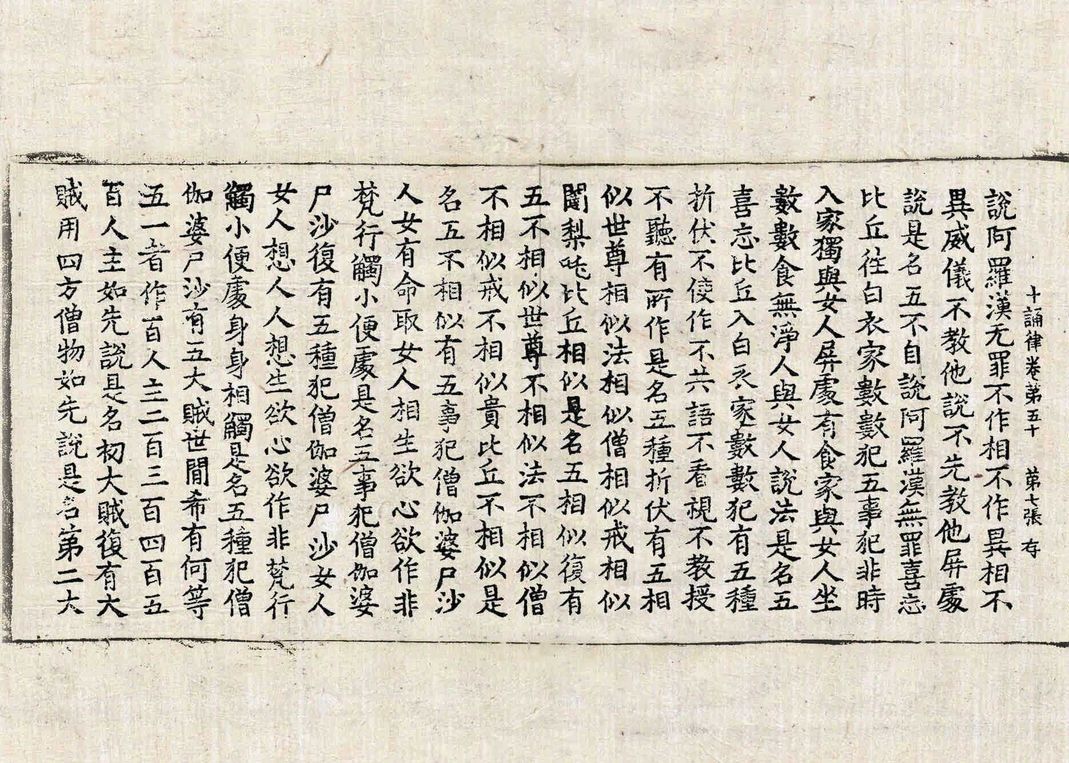 十誦律卷第五十 第七張 存
說阿羅漢无罪不作相不作異相不
異威儀不教他說不先教他屏處
說是名五不自說阿羅漢無罪喜忘
比丘往白衣家數數犯五事犯非時
入家獨與女人屏處有食家與女人坐
數數食無淨人與女人說法是名五
喜忘比丘入白衣家數數犯有五種
折伏不使作不共語不看視不教授
不聽有所作是名五種折伏有五相
似世尊相似法相似僧相似戒相似
闥梨吒比丘相似是名五相似復有
五不相似世尊不相似法不相似僧
不相似戒不相似貴比丘不相似是
名五不相似有五事犯僧伽婆尸沙
人女有命取女人相生欲心欲作非
梵行觸小便處是名五事犯僧伽婆
尸沙復有五種犯僧伽婆尸沙女人
女人想人人想生欲心欲作非梵行
觸小便處身身相觸是名五種犯僧
伽婆尸沙有五大賊世間希有何等
五一者作百人主二百三百四百五
百人主如先說是名初大賊復有大
賊用四方僧物如先說是名第二大